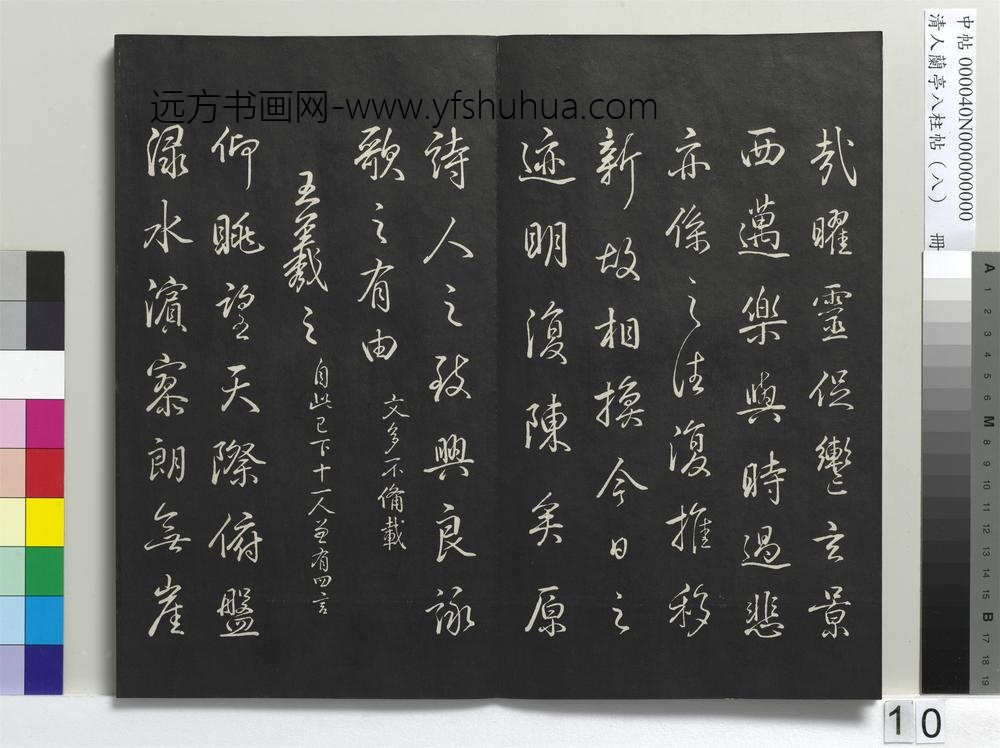 中帖000040N00000000
清人蘭亭八柱帖（八） 冊
远方书画网-www.yfshuhua.com
哉曜靈促轡玄景
西邁樂與時過悲
亦係之往復推移
新故相換今日之
迹明復陳矣原
詩人之致興良詠
歌之有由 文多不備載
王羲之 自此已下十一人並有四言
仰眺望天際俯盤
渌水濱寥朗無崖
A 1 2 3 4 5 6 M 8 9 10 11 12 13 14 15 B 17 18 19
10